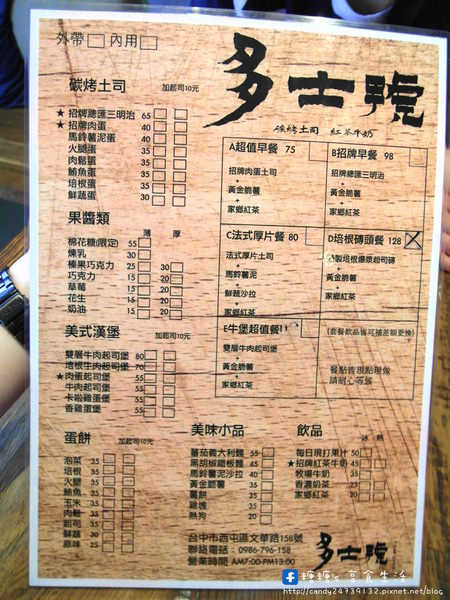 外帶 內用
多士號
碳烤土司 紅茶牛奶
碳烤土司 加起司10元
★招牌總匯三明治 65
★招牌肉蛋 40
馬鈴薯泥蛋 40
火腿蛋 35
肉鬆蛋 35
鮪魚蛋 35
培根蛋 35
鮮蔬蛋 30
果醬類 薄 厚
棉花糖(限定) 55
煉乳 30
榛果巧克力 25 30
巧克力 15 20
草莓 15 20
花生 15 20
奶油 15 20
美式漢堡 加起司10元
雙層牛肉起司堡 80
培根牛肉起司堡 70
★肉蛋起司堡 55
牛肉起司堡 55
卡啦雞蛋堡 55
香雞蛋堡 55
蛋餅 加起司10元
泡菜 35
培根 35
火腿 35
鮪魚 35
玉米 35
肉鬆 35
起司 35
鮮蔬 30
原味 25
A超值早餐 75
招牌肉蛋土司
+
黃金脆薯
+
家鄉紅茶
B招牌早餐 98
招牌總匯三明治
+
黃金脆薯
+
家鄉紅茶
C法式厚片餐 80
法式厚片土司
+
馬鈴薯泥
+
鮮蔬沙拉
+
家鄉紅茶
D培根磚頭餐 128
製培根爆漿起司磚
+
黃金脆薯
+
家鄉紅茶
E牛堡超值餐
雙層牛肉起司堡
+
黃金脆薯
+
家鄉紅茶
(套餐飲品皆可補差額更換)
餐點皆現點現做
請耐心等候
美味小品
蕃茄義大利麵 55
黑胡椒鐵板麵 45
馬鈴薯泥沙拉 40
黃金脆薯 35
薯餅
雞塊 35
熱狗 20
飲品 冰 熱
每日現打果汁 50
★招牌紅茶牛奶 35
牧場牛奶 35
香濃奶茶 25
家鄉紅茶 20
台中市西屯區文華路158號
聯絡電話：0986-796-158
營業時間 AM7:00-PM13:00
多士號
糖糖's 享食生活
http://candy24739132.pixnet.net/blog